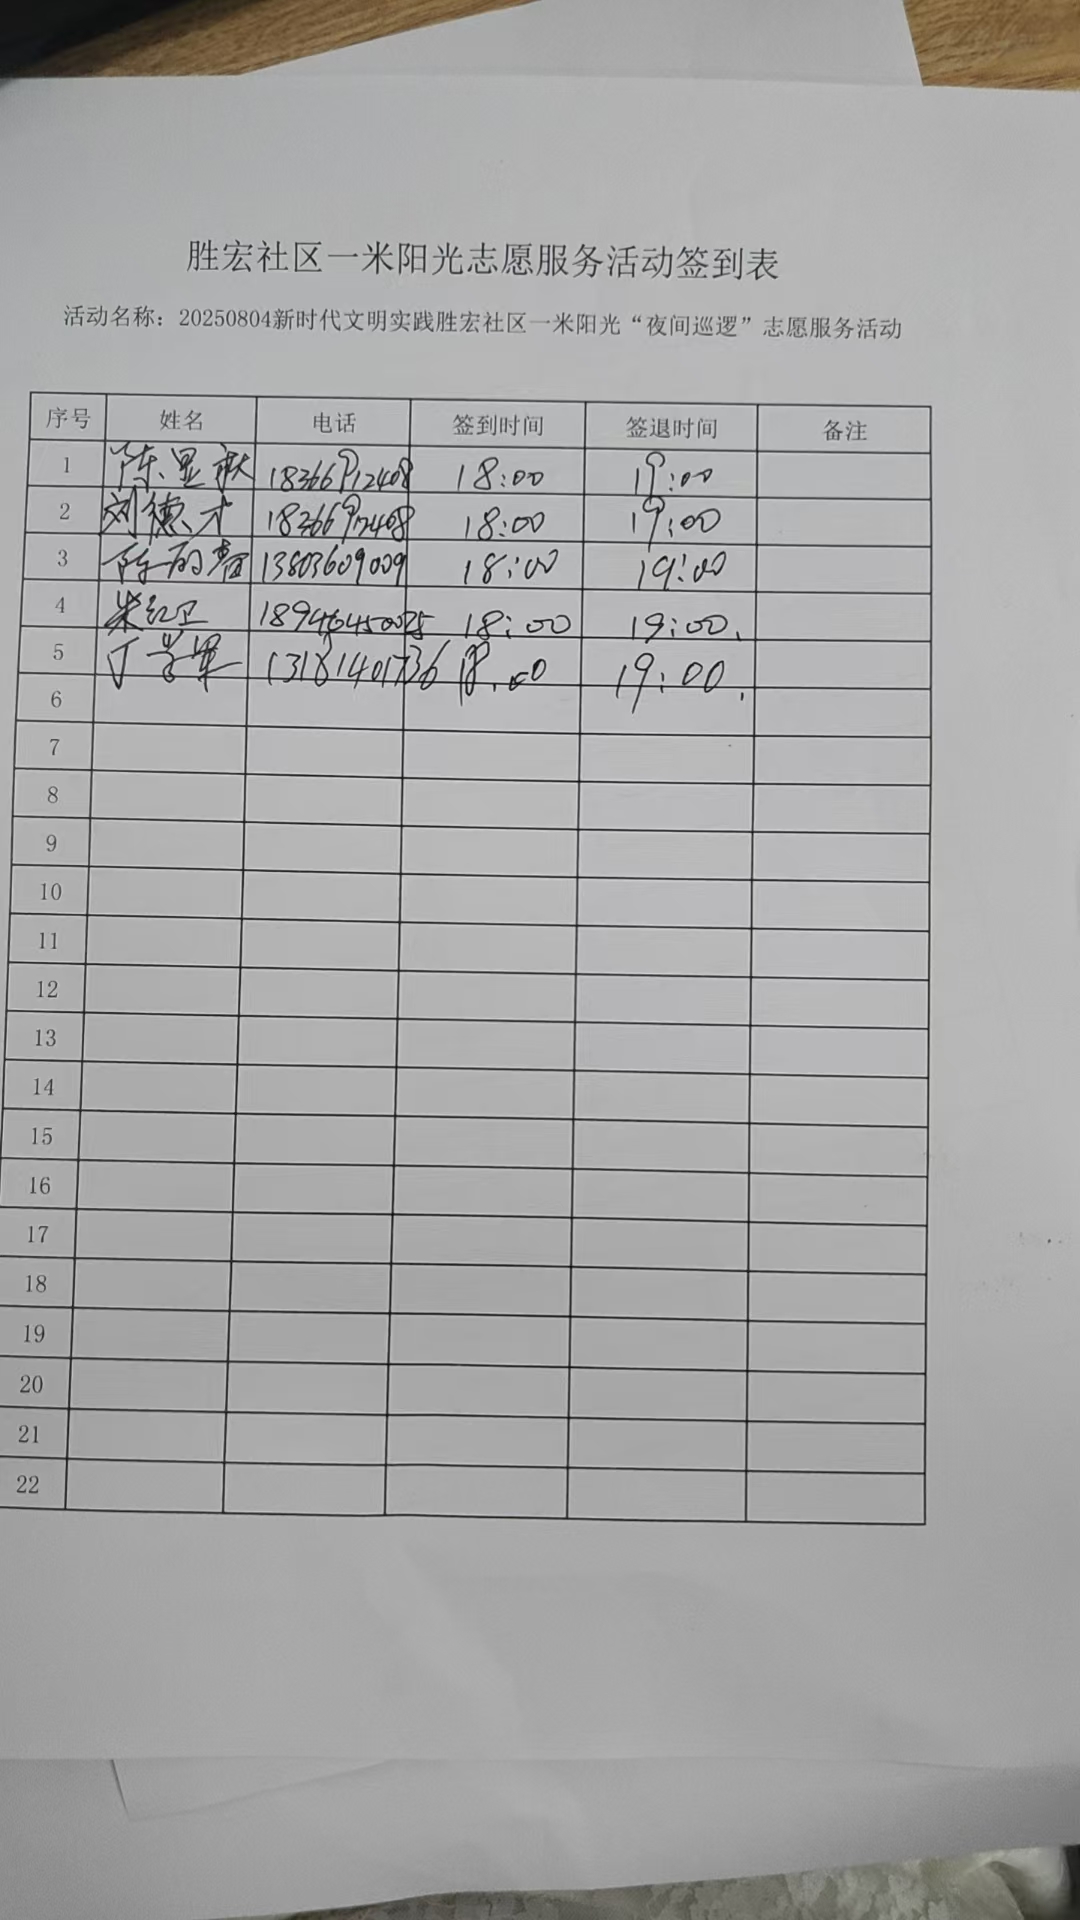 胜宏社区一米阳光志愿服务活动签到表
活动名称：20250804新时代文明实践胜宏社区一米阳光“夜间巡逻”志愿服务活动
序号 姓名 电话 签到时间 签退时间 备注
1 陈显 18366912408 18:00 19:00
2 刘德才 18366912408 18:00 19:00
3 陈 13803609009 18:00 19:00
4 朱红卫 18946450025 18:00 19:00.
5 丁学军 13181401736 18.00 19:00.
6
7
8
9
10
11
12
13
14
15
16
17
18
19
20
21
22